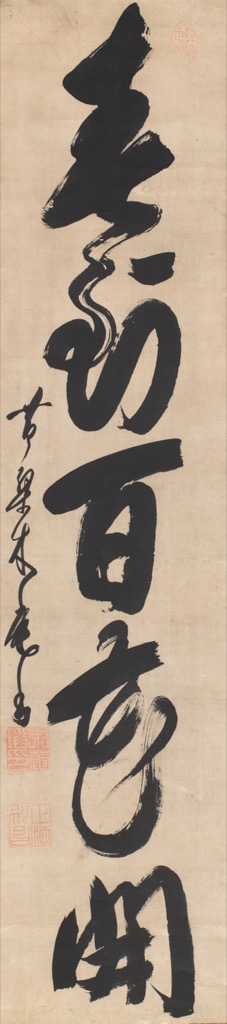 春到百花開
黄檗木庵書